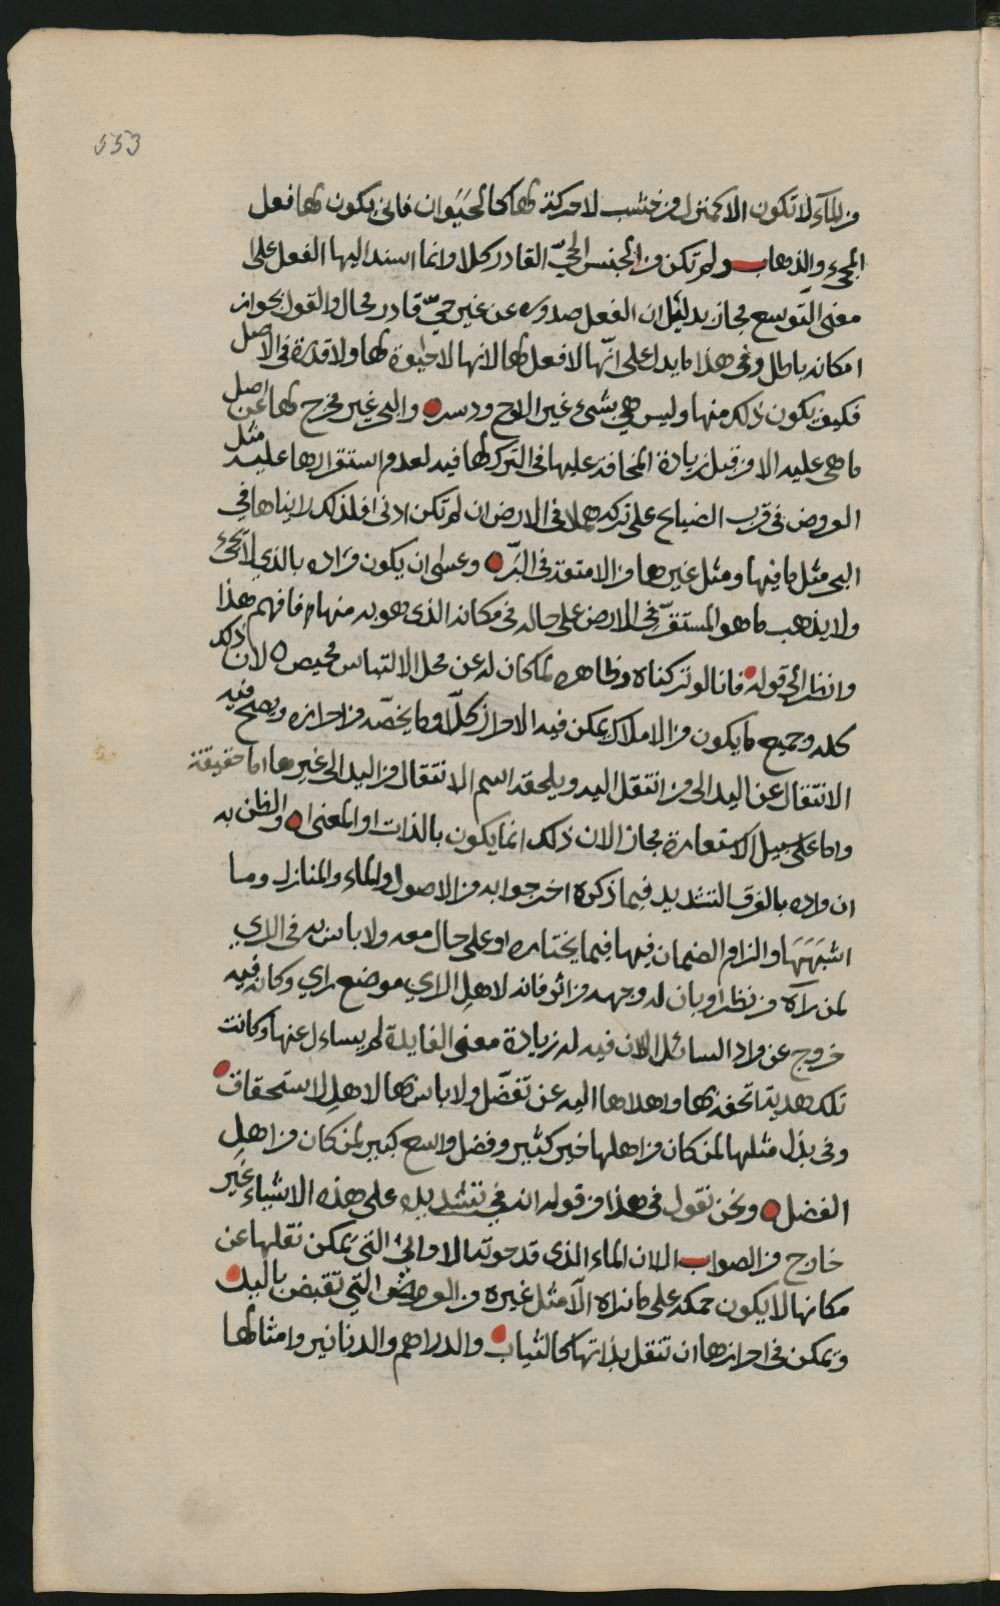 553
من الماء لا تكون الا كمنزل من خشب لا حركة لها كالحيوان فاني يكون لها فعل
المجيء والذهاب ولم تكن من الجنس الحيّ القادر كلا وانما اسند اليها الفعل على
معنى التوسع مجاز بدليل ان الفعل صدوره عن غير حيّ قادر محال والقول بجواز
امكانه باطل وفي هذا ما يدل على انّها لا فعل لها لانها لا حيوة لها ولا قدرة في الاصل
فكيف يكون ذلك منها وليس هي بشيء غير الالوح ودسره والبحر غير مخرج لها عن اصل
ما هي عليه الا من قبل زيادة المخافة عليها في الترك لها فيه لعدم استقرارها عليه مثل
العروض في قرب الضياع على تركه هملا في الارض ان لم تكن ادنى افلذلك لايناها في
البحر مثل ما فيها ومثل غيرها من الامتعة في البرّ وعسى ان يكون مراده بالذي لا يجيء
ولا يذهب ما هو المستقرّ في الارض على حاله في مكانه الذي هو به منها فافهم هذا
وانظر الى قوله فانا لو تركناه وظاهره لما كان له عن محل الالتباس محيص لان ذلك
كله وجميع ما يكون من الاملاك يمكن فيه الاحراز كلّا وما يخصّه من احرازه ويصح فيه
الانتقال عن اليد الى من انتقل اليه ويلحقه اسم الانتقال من اليد الى غيرها اما حقيقة
واما على سبيل الاستعارة مجاز الان ذلك انما يكون بالذات او المعنى والظن به
ان مراده بالفرق التشديد فيما ذكره اخر جوابه من الاصول والماء والمنازل وما
اشبهها والزام الضمان فيها فيما يختاره او على حال معه ولا باس به في الراي
لمن رآه من نظر او بان له وجهه من اثر فانه لاهل الراي موضع راي وكانه فيه
خروج عن مراد السائل الا ان فيه له زيادة معنى الفايدة لم يساءل عنها وكانت
تلك هدية اتحفه بها واهداها اليه عن تفضّل ولا باس بها لاهل الاستحقاق
وفي بذل مثلها لمن كان من اهلها خير كثير وفضل واسع كبير لمن كان من اهل
الفضل ونحن نقول في هذا من قوله انه في تشديده على هذه الاشياء غير
خارج من الصواب الا ان الماء الذي قد حوته الاواني التي يمكن نقلها عن
مكانها لا يكون حكمه على ما نراه الّا مثل غيره من العروض التي تقبض باليد
ويمكن في احرازها ان تنقل بذاتها كالثياب والدراهم والدنانير وامثالها